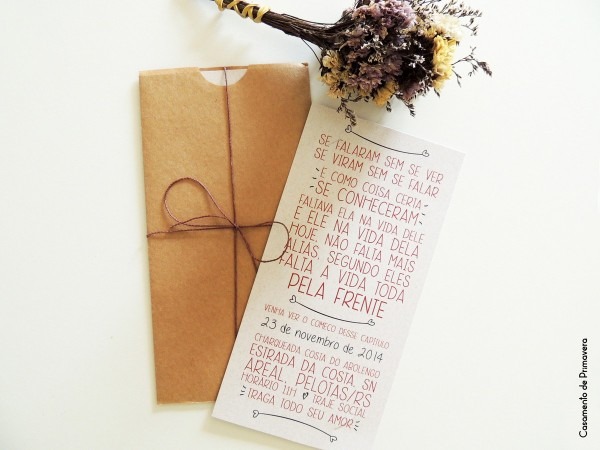 SE FALARAM SEM SE VER
SE VIRAM SEM SE FALAR
E COMO COISA CERTA
SE CONHECERAM
FALTAVA ELA NA VIDA DELE
E ELE NA VIDA DELA
HOJE, NÃO FALTA MAIS
ALIÁS, SEGUNDO ELES
FALTA A VIDA TODA
PELA FRENTE
VENHA VER O COMEÇO DESSE CAPÍTULO
23 de novembro de 2014
CHARQUEADA COSTA DO ABOLENGO
ESTRADA DA COSTA, SN
AREAL, PELOTAS/RS
HORÁRIO 11H TRAJE SOCIAL
TRAGA TODO SEU AMOR
Casamento de Primavera